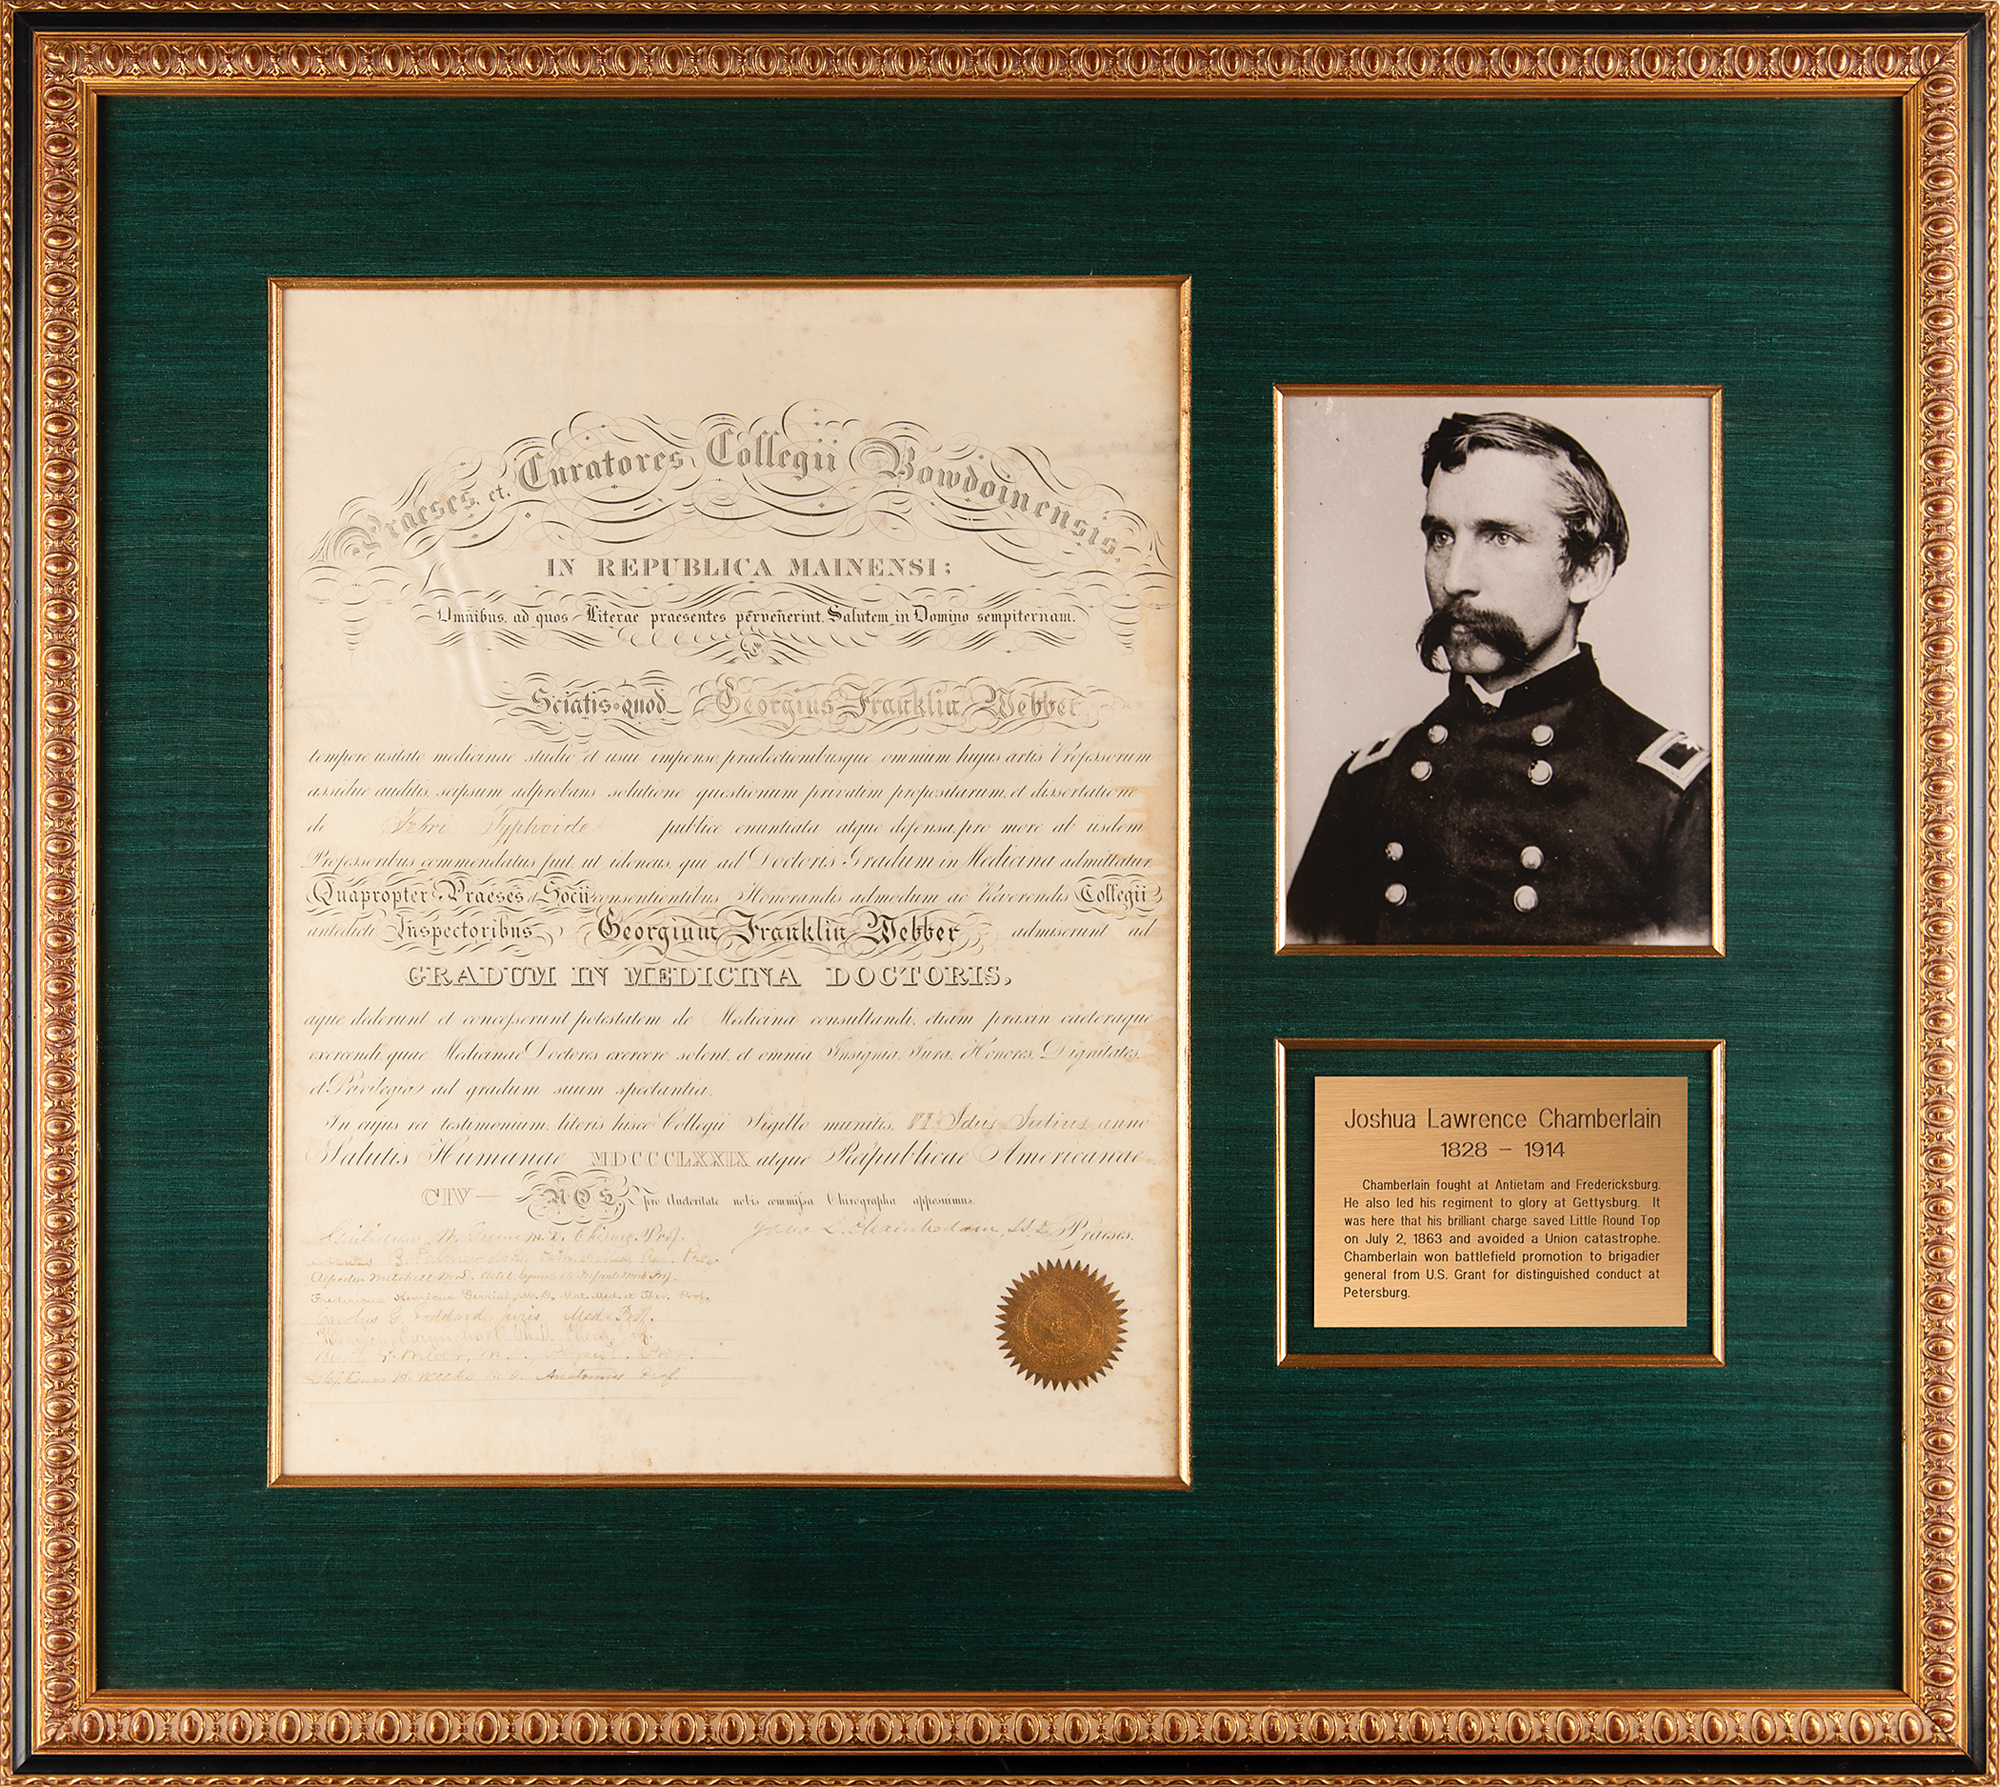 Praeses et Curatores Collegii Bowdoinensis
IN REPUBLICA MAINENSI;
Omnibus ad quos Literae praesentes pervenerint, Salutem in Domino sempiternam.
Sciatis quod Georgius Franklin Webber
tempore usitato medicinae studio et usui impenso, praelectionibusque omnium hujus artis Professorum
assidue auditis, seipsum adprobans solutione questionum privatim propositarum, et dissertatione
de Febri Typhoide publice enuntiata atque defensa, pro more ab iisdem
Professoribus commendatus fuit, ut idoneus, qui ad Doctoris Gradum in Medicina admittatur,
Quapropter Praeses & Socii consentientibus Honorandis admodum ac Reverendis Collegii
antedicti Inspectoribus Georgium Franklin Webber admiserunt ad
GRADUM IN MEDICINA DOCTORIS,
eique dederunt et concesserunt potestatem de Medicina consultandi, etiam praxin caeteraque
exercendi, quae Medicinae Doctores exercere solent, et omnia Insignia, Jura, Honores, Dignitates,
et Privilegia ad gradum suum spectantia.
In cujus rei testimonium, literis hisce Collegii Sigillo munitis, VI Idus Julius anno
Salutis Humanae MDCCCLXXIX atque Reipublicae Americanae
CIV NOS pro Auctoritate nobis commissa Chirographa apposuimus.
W. Greene M.D. Chirurg. Prof.
Joshua L. Chamberlain, LL.D. Praeses.
B. Prof.
Alpheus Mitchell M.D. Obstet. et Infant. Morb. Prof.
Fredericus Henricus Gerrish, M.D. Mat. Med. et Ther. Prof.
Carolus G. Goddard, juris Med. Prof.
Carmichael Prof.
Wilder, M.D., Prof.
Stephanus H. Weeks M.D. Anatomiae Prof.
Joshua Lawrence Chamberlain
1828 – 1914
Chamberlain fought at Antietam and Fredericksburg.
He also led his regiment to glory at Gettysburg. It
was here that his brilliant charge saved Little Round Top
on July 2, 1863 and avoided a Union catastrophe.
Chamberlain won battlefield promotion to brigadier
general from U.S. Grant for distinguished conduct at
Petersburg.